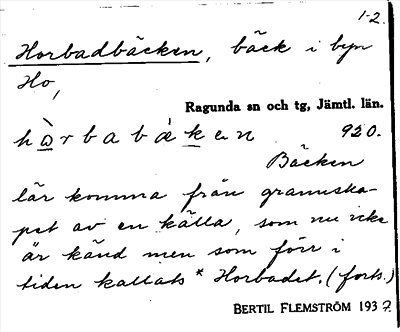 1-2.
Horbadbäcken, bäck i byn
Ho,
Ragunda sn och tg, Jämtl. län.
hὼrbabὰken 920.
Bäcken
lär komma från grannska-
pet av en källa, som nu icke
är känd men som förr i
tiden kallats *Horbadet. (forts.)
BERTIL FLEMSTRÖM 1937.